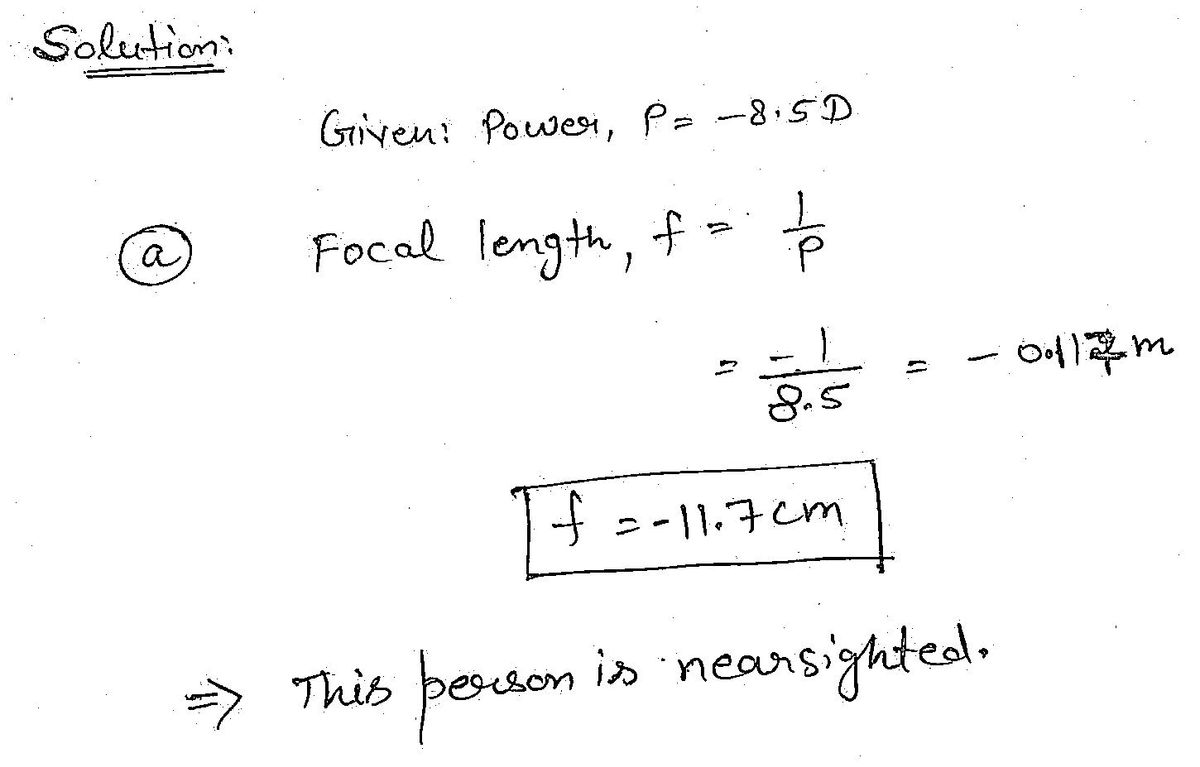 Solution:
Given: Power, P = -8.5 D
(a) Focal length, f = 1/P
= -1/8.5 = - 0.117 m
f = -11.7 cm
⇒ This person is nearsighted.